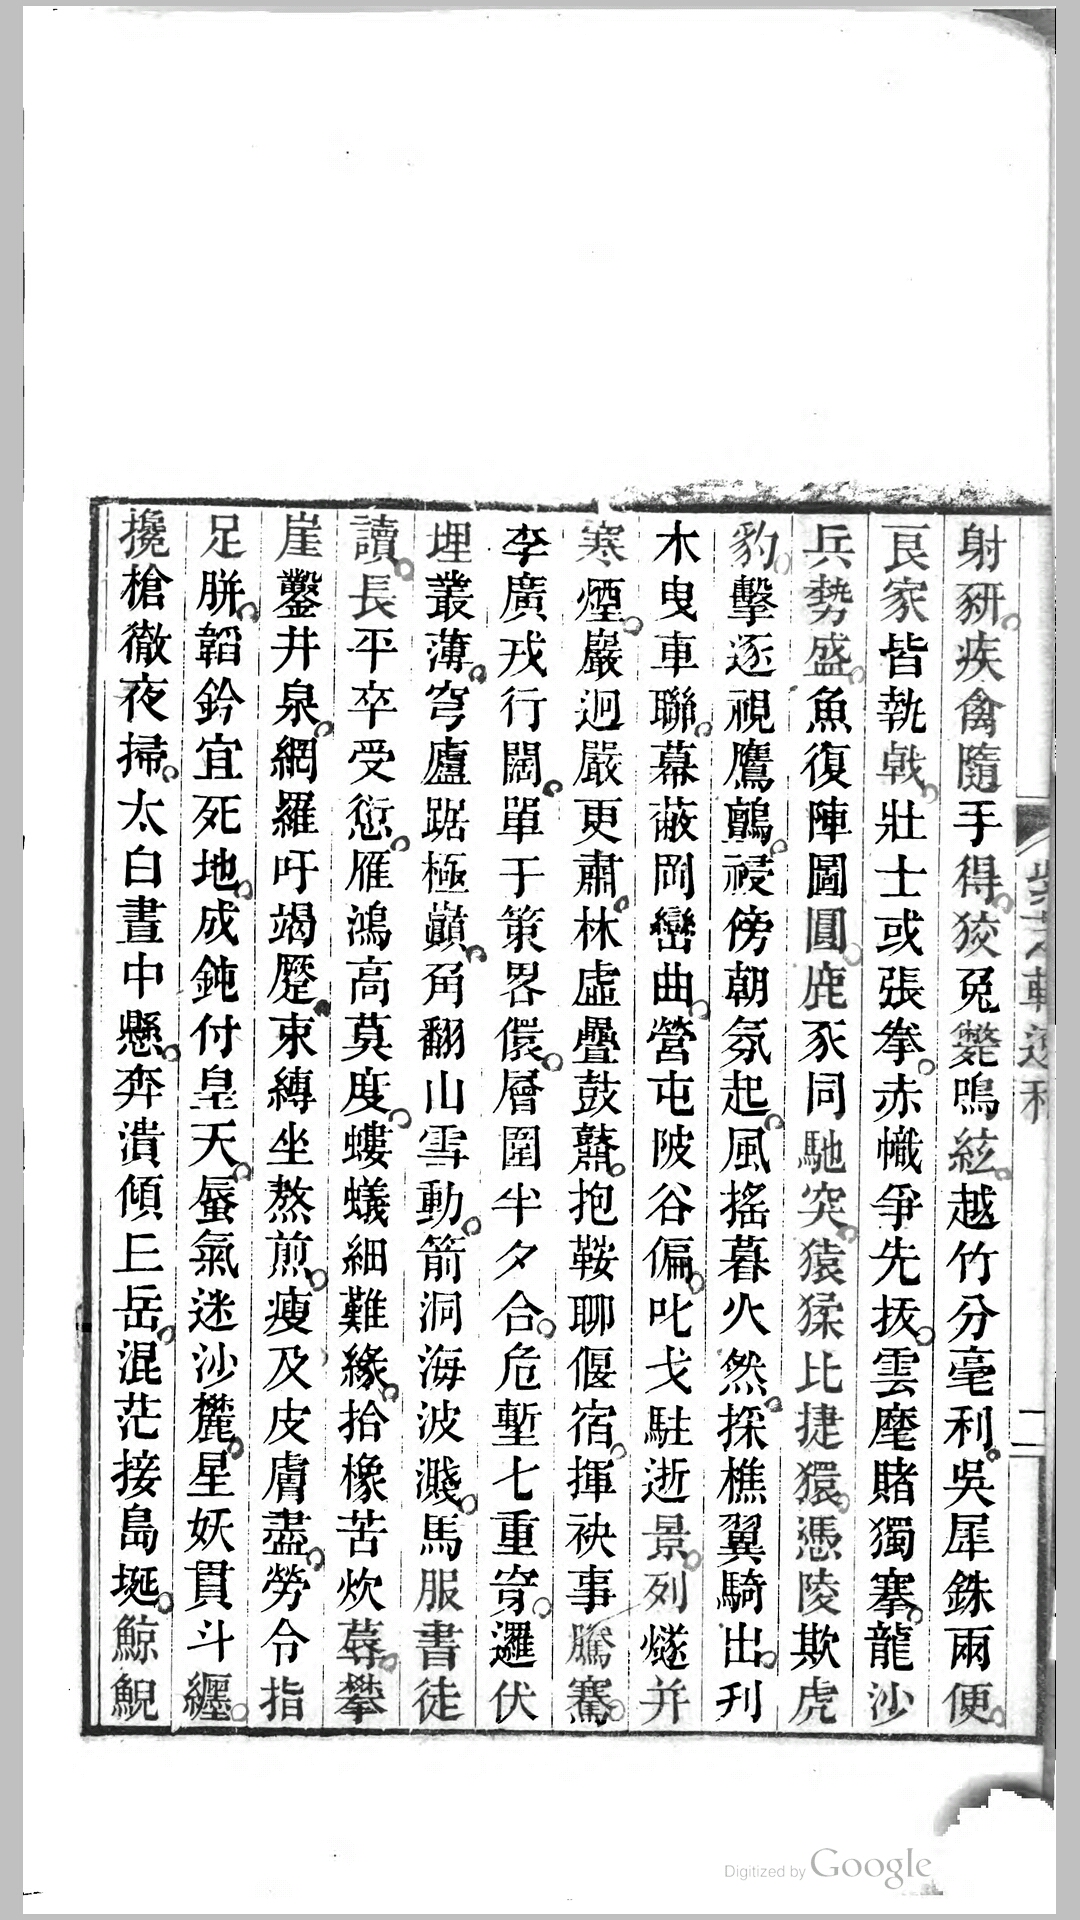 射豜。疾禽隨手得。狡兔斃鳴絃。越竹分毫利。吳犀銖兩便。
良家皆執戟。壯士或張拳。赤幟爭先拔。雲麾賭獨搴。龍沙
兵勢盛。魚復陣圖圓。鹿豕同馳突。猿猱比捷獧。憑陵欺虎
豹。擊逐視鷹鸇。祲傍朝氛起。風搖暮火然。採樵翼騎出。刋
木曳車聯。幕蔽岡巒曲。營屯陂谷偏。叱戈駐逝景。列燧并
寒煙。巖迥嚴更肅。林虛疊鼓鼘。抱鞍聊偃宿。揮袂事騰騫。
李廣戎行闊。單于策畧儇。層圍半夕合。危塹七重穿。邏伏
埋叢薄。穹廬踞極巔。角翻山雪動。箭洞海波濺。馬服書徒
讀。長平卒受愆。雁鴻高莫度。螻蟻細難緣。拾橡苦炊蓐。攀
崖鑿井泉。網羅吁竭蹷。束縛坐熬煎。瘦及皮膚盡。勞令指
足胼。韜鈐宜死地。成鈍付皇天。蜃氣迷沙麓。星妖貫斗纏。
攙槍徹夜掃。太白晝中懸。奔潰傾丘岳。混茫接島埏。鯨鯢
二
Digitized by Google